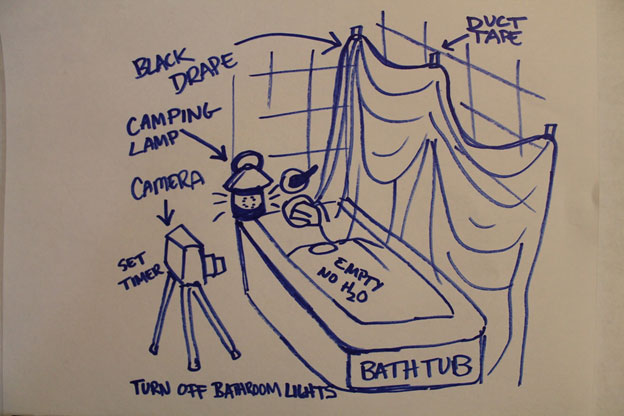 BLACK
DRAPE
DUCT
TAPE
CAMPING
LAMP
CAMERA
SET
TIMER
EMPTY
NO H2O
BATHTUB
TURN OFF BATHROOM LIGHTS